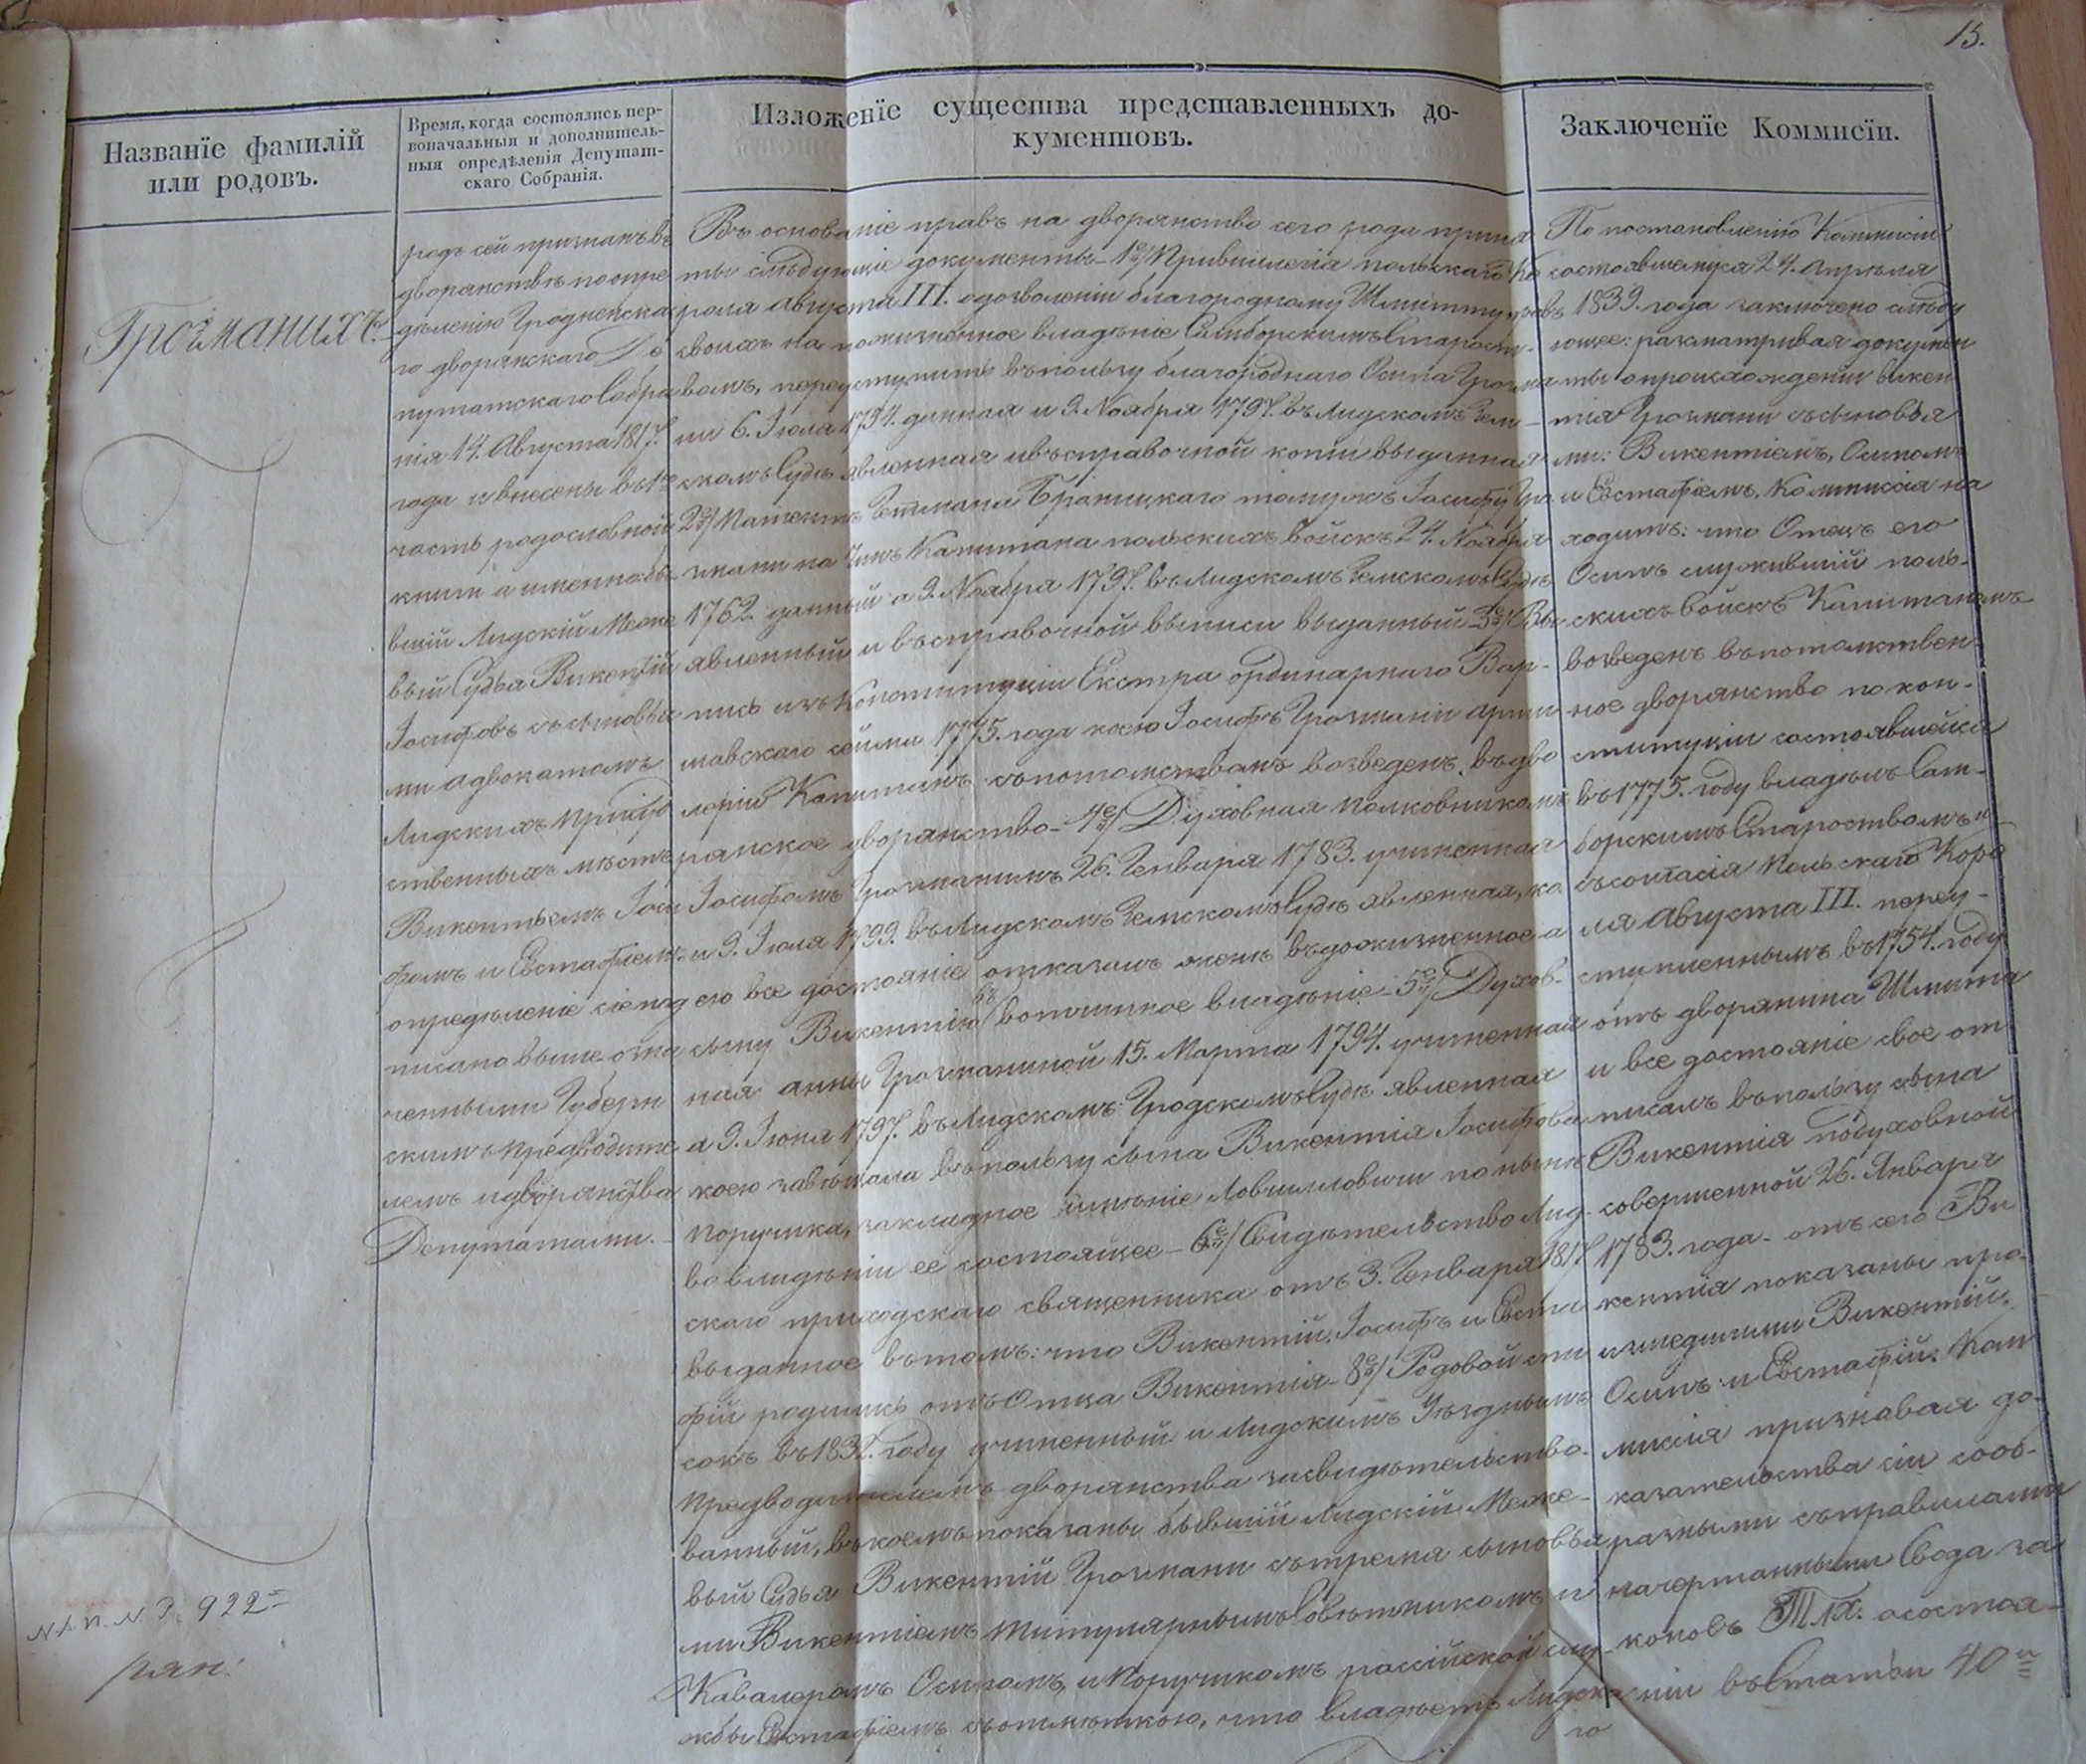 13.
Названіе фамилій
или родовъ.
Время, когда состоялись пер-
воначальныя и дополнитель-
ныя опредѣленія Депутат-
скаго Собранія.
Изложеніе существа представленныхъ до-
кументовъ.
Заключеніе Коммисіи.
Грозманихъ.
родъ сей признанъ въ
дворянствѣ по опре
дѣленію Гродненска
го дворянскаго Де
путатскаго Собра
нія 14. Августа 1817.
года и внесены въ 1ю
часть родословной
книги а именно: бы
вшій Лидскій Меже
вый Судья Викентій
Іосифовъ съ сыновья
ми адвокатомъ
Лидскихъ присут
ственныхъ мѣстъ
Викентьемъ Іоси
фомъ и Евстафіемъ
опредѣленіе сіе под
писано выше озна
ченными Губерн
скимъ предводите
лемъ и дворянства
Депутатами.
Въ основаніе правъ на дворянство сего рода приня
ты слѣдующіе документы 1е/ Привиллегія польскаго Ко
роля Августа III. о дозволеніи благородному Шмитту правъ
своихъ на пожизненное владѣніе Самборскимъ Старост-
вомъ, переуступить въ пользу благороднаго Осипа Грозма
ни 6. Іюля 1754. данная и 9. Ноября 1797. въ Лидскомъ Зем-
скомъ Судѣ явленная и въ справочной копіи выданная
2е/ Патентъ Гетмана Браницкаго томужъ Іосифу Гро
змани на чинъ Капитана польскихъ войскъ 24. Ноября
1762. данный а 9. Ноября 1797. въ Лидскомъ Земскомъ Судѣ
явленный и въ справочной выписи выданный 3е/ Вы
пись изъ Конституціи Екстра ординарнаго Вар-
шавскаго сейма 1775. года коею Іосифъ Грозмани арти
леріи Капитанъ съ потомствомъ возведенъ въ дво
рянское дворянство 4е/ Духовная полковникомъ
Іосифомъ Грозманимъ 26. Генваря 1783. учиненная
и 9. Іюля 1799. въ Лидскомъ Земскомъ Судѣ явленная, ко
ею все достояніе отказалъ женѣ въ дожизненное а
сыну Викентію въ вотчинное владѣніе 5е/ Духов-
ная анны Грозманиной 15. Марта 1794. учиненная
а 9. Іюня 1797. въ Лидскомъ Гродскомъ Судѣ явленная
коею завѣщала въ пользу сына Викентія Іосифова
поручика, закладное имѣніе понынѣ
во владѣніи ее состоящее 6е/ Свидѣтельство Лид-
скаго приходскаго священника отъ 3. Генваря 1817
выданное въ томъ: что Викентій, Іосифъ и Евста
фій родились отъ отца Викентія 8е/ Родовой спи
сокъ въ году учиненный и Лидскимъ Уѣзднымъ
предводителемъ дворянства засвидѣтельство-
ванный, въ коемъ показаны бывшій Лидскій Меже-
вый Судья Викентій Грозмани съ тремя сыновья
ми Викентіемъ титулярнымъ Совѣтникомъ и
Кавалеромъ Осипомъ, и поручикомъ россійской слу-
жбы Евстафіемъ съ отмѣткою, что владѣетъ Лидска
го
По постановленію Коммисіи
состоявшемуся 24. апрѣля
1839. года заключено слѣду
ющее: разсматривая докумен
ты о происхожденіи Викен
тія Грозмани съ сыновья
ми: Викентіемъ, Осипомъ
и Евстафіемъ. Коммиссія на
ходитъ: что Отецъ его
Осипъ служившій поль-
скихъ войскъ Капитаномъ
возведенъ въ потомствен-
ное дворянство по кон-
ституціи состоявшейся
въ 1775. году владѣлъ Сам-
борскимъ Староствомъ
съ согласія польскаго Коро
ля Августа III. переу-
ступленнымъ въ 1754. году
отъ дворянина Шмита
и все достояніе свое от
писалъ въ пользу сына
Викентія по духовной
совершенной 26. Января
1783. года отъ сего Ви
кентія показаны про-
изшедшими Викентій,
Осипъ и Евстафій. Ком
миссія признавая до-
казательства сіи сооб-
разными съ правилами
начертанными Свода за
коновъ Т. IX. о состоя-
ніи въ Статьи 40й
922